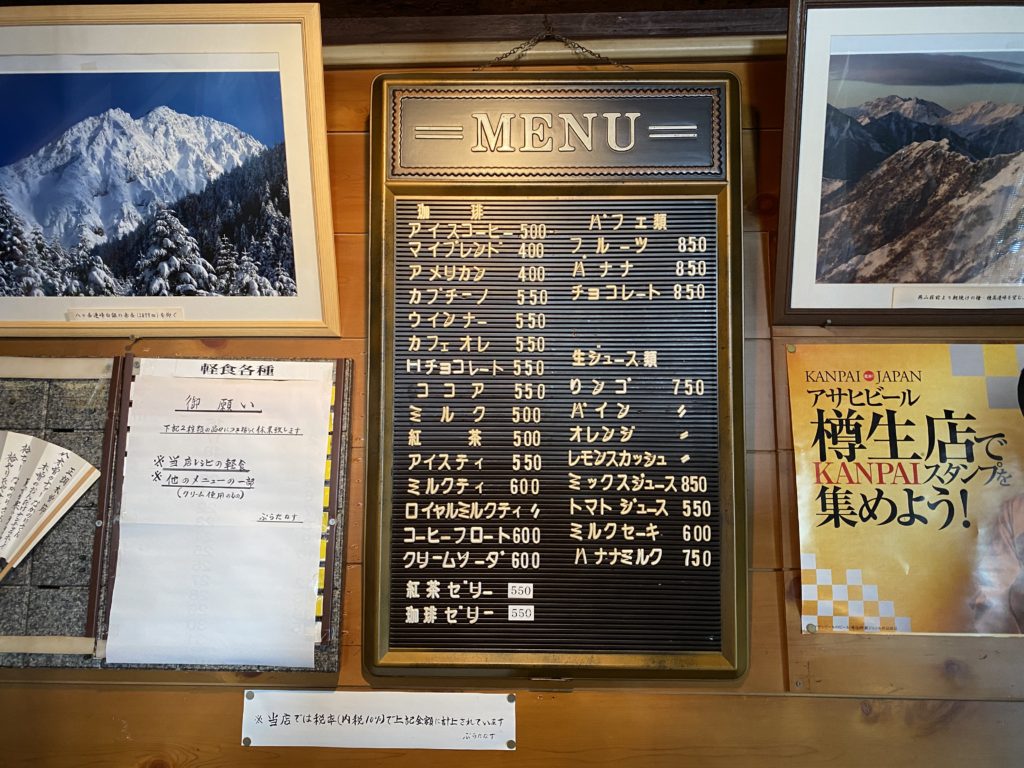 MENU
珈 琲
アイスコーヒー 500
マイブレンド 400
アメリカン 400
カプチーノ 550
ウインナー 550
カフェオレ 550
Hチョコレート 550
ココア 550
ミルク 500
紅 茶 500
アイスティ 550
ミルクティ 600
ロイヤルミルクティ 〃
コーヒーフロート 600
クリームソーダ 600
紅茶ゼリー 550
珈琲ゼリー 550
パフェ類
フルーツ 850
バナナ 850
チョコレート 850
生ジュース類
リンゴ 750
パイン 〃
オレンジ 〃
レモンスカッシュ 〃
ミックスジュース 850
トマトジュース 550
ミルクセーキ 600
バナナミルク 750
軽食各種
御願い
※当店レシピの軽食
※他のメニューの一部
(クリーム使用のもの)
ぷらたなす
KANPAI JAPAN
アサヒビール
樽生店で
KANPAIスタンプを
集めよう!
※当店では税率(内税10%)で上記金額に計上されています
ぷらたなす